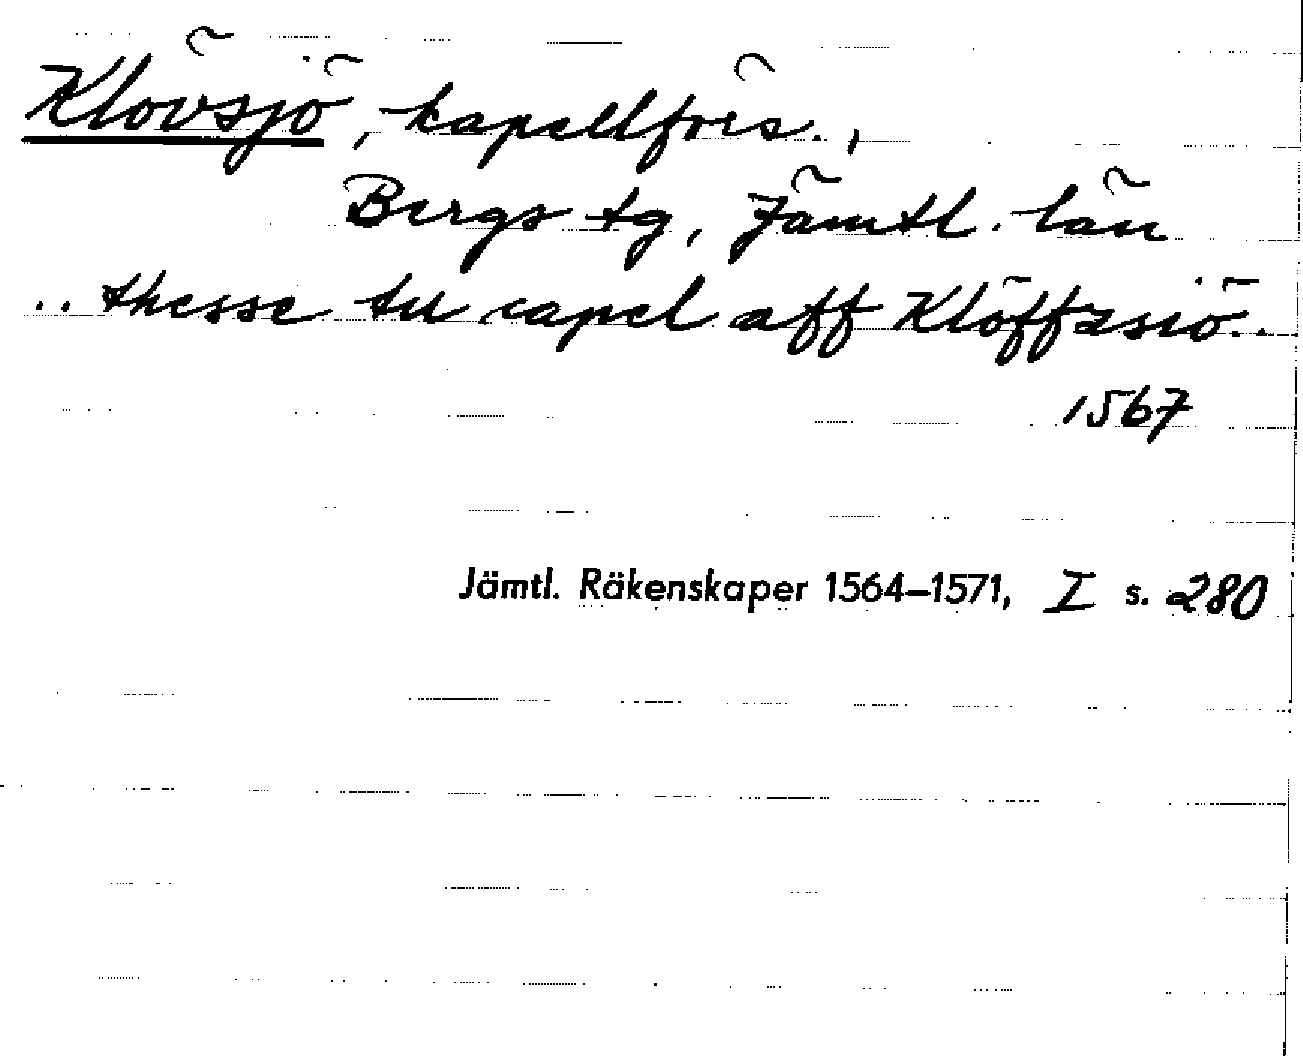 Klövsjö, kapellförs.,
Bergs tg, Jämtl. län
.. thesse tu capel aff Klöffzsiö..
1567
Jämtl. Räkenskaper 1564–1571, I s. 280